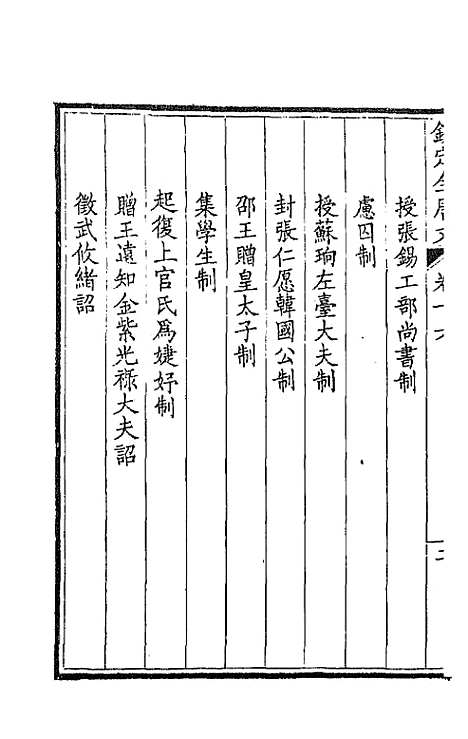 欽定全唐文 卷十六 二
授張錫工部尚書制
慮囚制
授蘇珦左臺大夫制
封張仁愿韓國公制
邵王贈皇太子制
集學生制
起復上官氏爲婕妤制
贈王遠知金紫光祿大夫詔
徵武攸緒詔